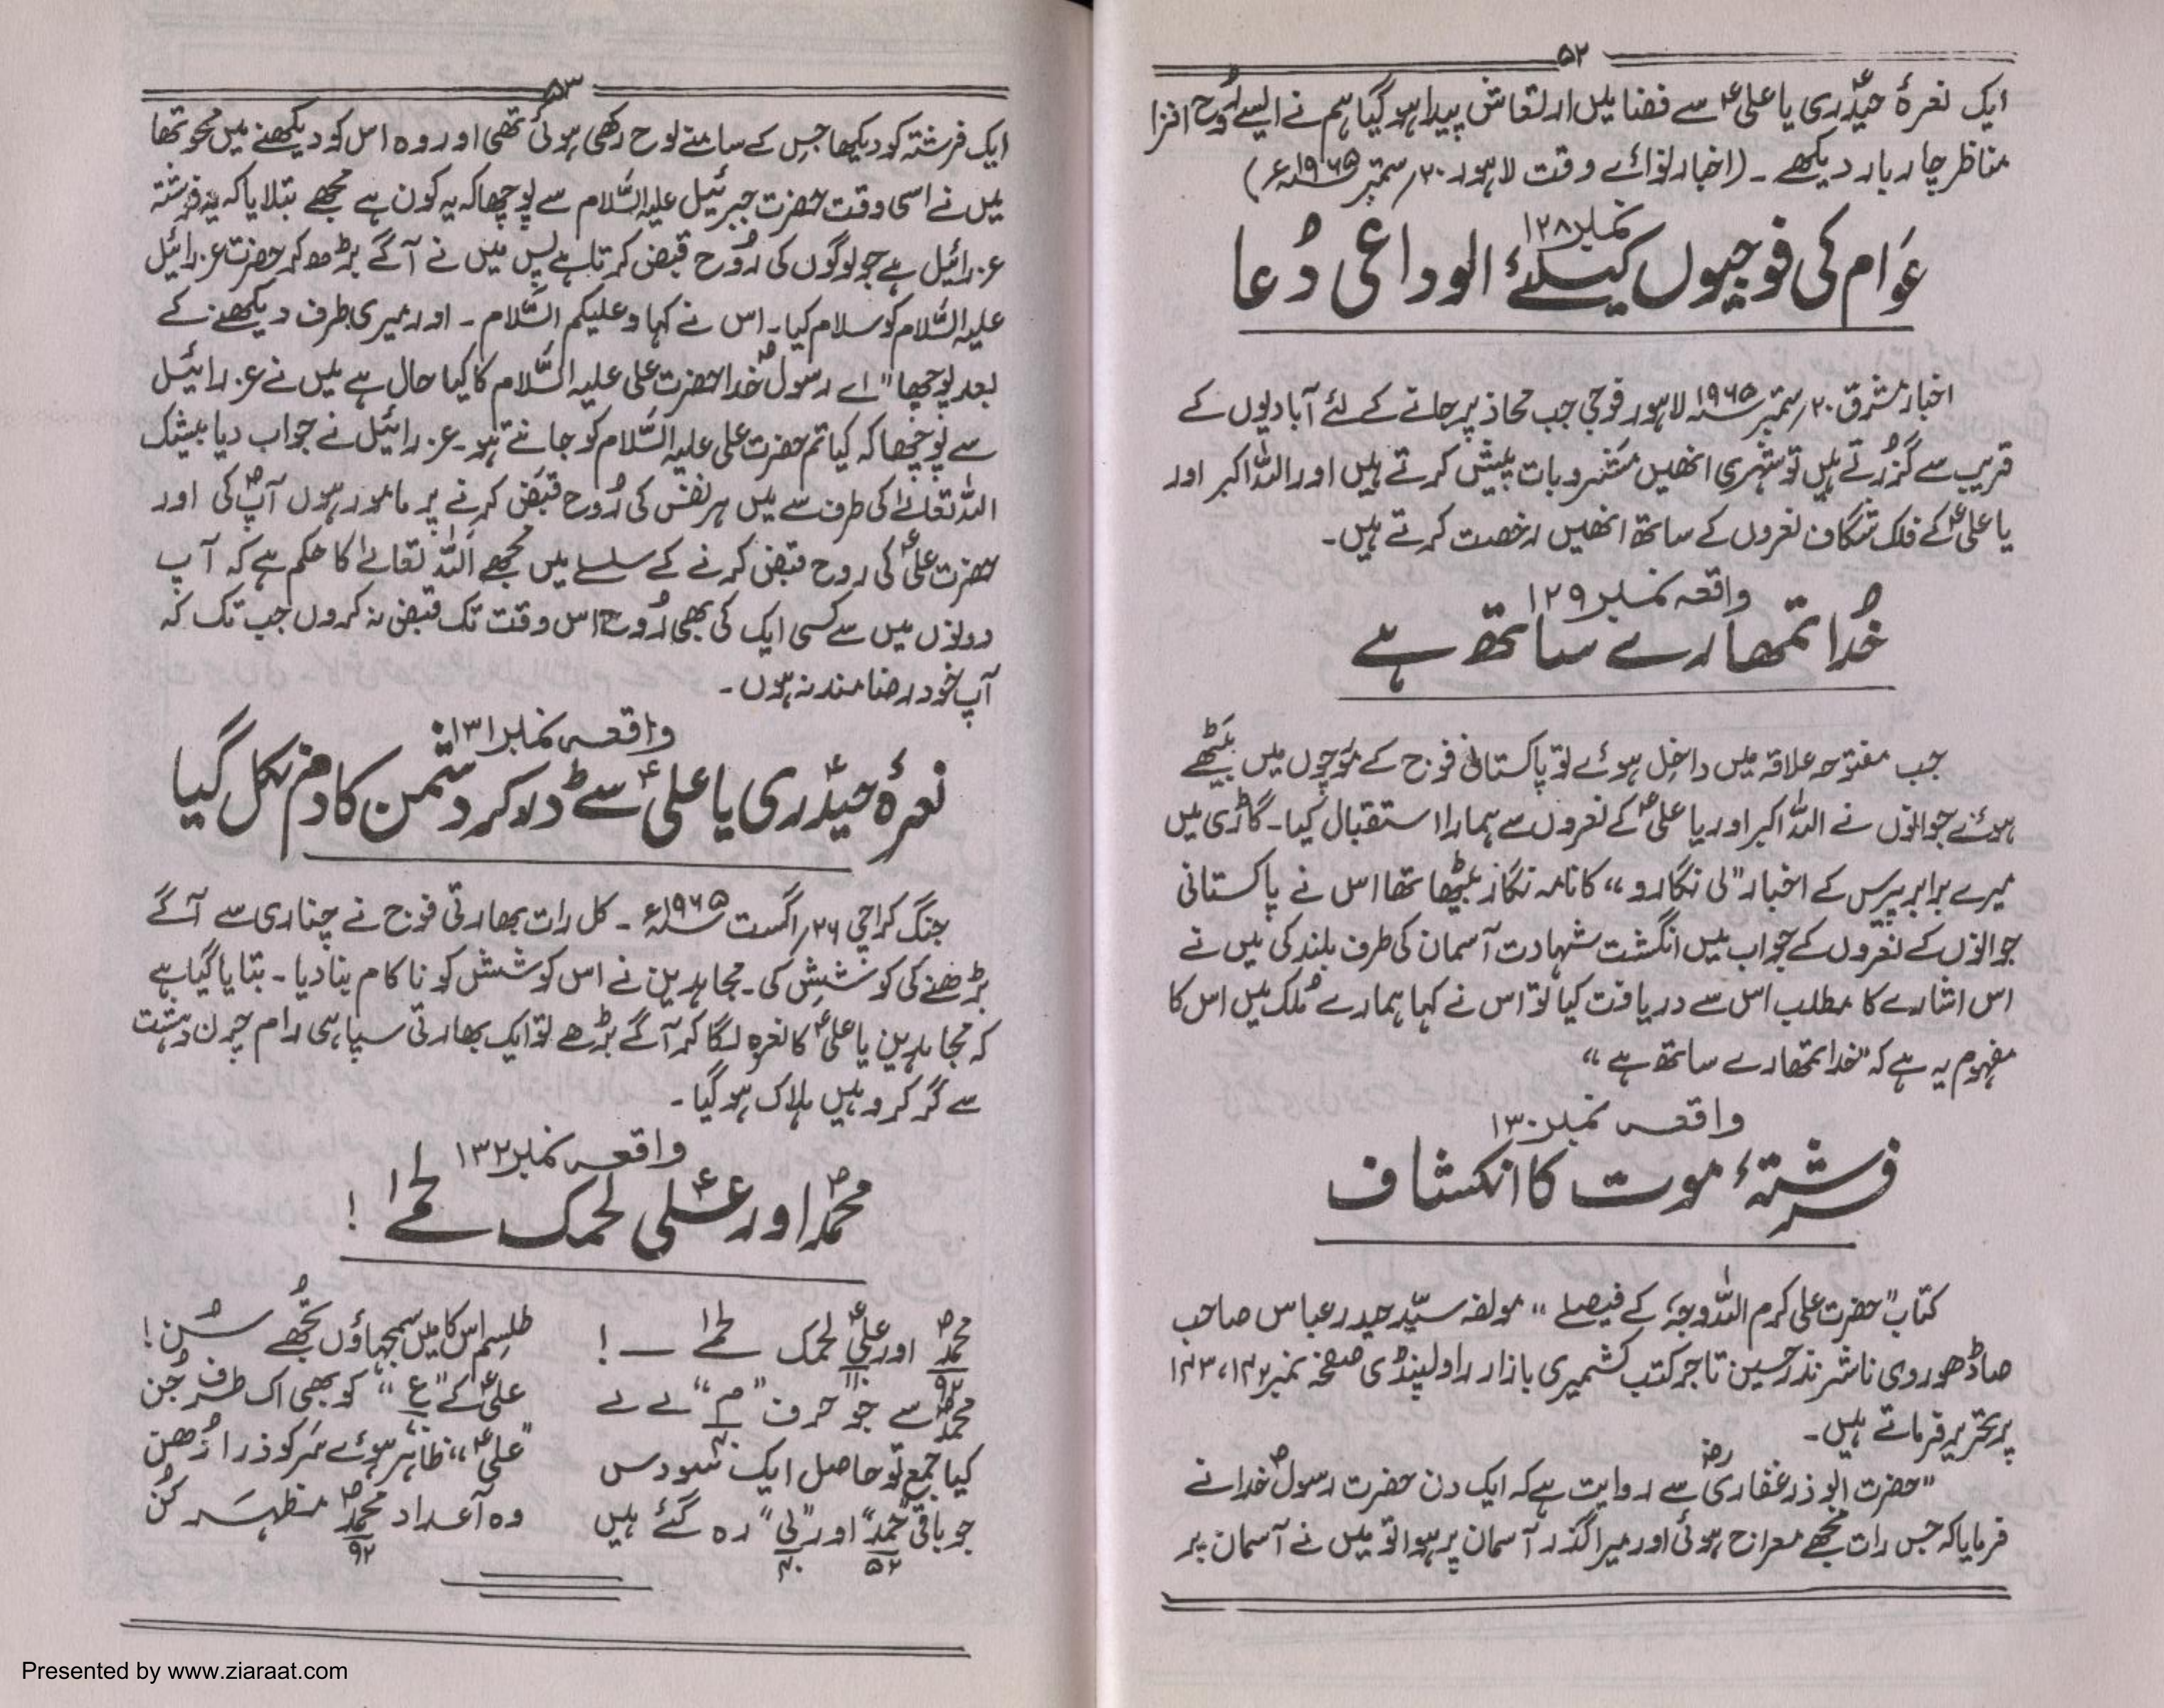 ۵۲
ایک نعرۂ حیدری یا علیؑ سے فضا میں ارتعاش پیدا ہو گیا ہم نے ایسے رُوح افزا
مناظر چار بار دیکھے ۔ (اخبار نوائے وقت لاہور ۲۰؍ستمبر ۱۹۶۵ء)
نمبر ۱۲۸
عَوام کی فوجیوں کیلئے الوداعی دُعا
اخبار مشرق ۲۰؍ستمبر ۱۹۶۵ لاہور فوجی جب محاذ پر جانے کے لئے آبادیوں کے
قریب سے گزُرتے ہیں تو شہری انھیں مشروبات پیش کرتے ہیں اور اللہ اکبر اور
یا علیؑ کے فلک شگاف نعروں کے ساتھ انھیں رخصت کرتے ہیں۔
واقعہ نمبر ۱۲۹
خُدا تمھارے ساتھ ہے
جب مفتوحہ علاقہ میں داخل ہوئے تو پاکستانی فوج کے مورچوں میں بیٹھے
ہوئے جوانوں نے اللہ اکبر اور یا علیؑ کے نعروں سے ہمارا استقبال کیا۔ گاڑی میں
میرے برابر پیرس کے اخبار "لی نگارو" کا نامہ نگار بیٹھا تھا اس نے پاکستانی
جوانوں کے نعروں کے جواب میں انگشت شہادت آسمان کی طرف بلند کی میں نے
اس اشارے کا مطلب اس سے دریافت کیا تو اس نے کہا ہمارے مُلک میں اس کا
مفہوم یہ ہے کہ "خدا تمھارے ساتھ ہے"
واقعہ نمبر ۱۳۰
فرشتۂ موت کا انکشاف
کتاب "حضرت علی کرم اللہ وجہٗ کے فیصلے" مولفہ سیّد حیدر عباس صاحب
صاڈھوروی ناشر نذر حسین تاجر کتب کشمیری بازار راولپنڈی صفحہ نمبر ۱۴۲، ۱۴۳
پر تحریر فرماتے ہیں۔
"حضرت ابوذر غفاریؓ سے روایت ہے کہ ایک دن حضرت رسول خداؐ نے
فرمایا کہ جس رات مجھے معراج ہوئی اور میرا گذر آسمان پر ہوا تو میں نے آسمان پر
۵۳
ایک فرشتہ کو دیکھا جس کے سامنے لوح رکھی ہوئی تھی اور وہ اس کو دیکھنے میں محو تھا
میں نے اسی وقت حضرت جبرئیل علیہ السّلام سے پوچھا کہ یہ کون ہے مجھے بتلایا کہ یہ فرشتہ
عزرائیل ہے جو لوگوں کی رُوح قبض کرتا ہے پس میں نے آگے بڑھ کر حضرت عزرائیل
علیہ السّلام کو سلام کیا۔ اس نے کہا وعلیکم السّلام ۔ اور میری طرف دیکھنے کے
بعد پوچھا "اے رسول خداؐ حضرت علی علیہ السّلام کا کیا حال ہے میں نے عزرائیل
سے پوچھا کہ کیا تم حضرت علی علیہ السّلام کو جانتے ہو۔ عزرائیل نے جواب دیا بیشک
اللہ تعالیٰ کی طرف سے میں ہر نفس کی رُوح قبض کرنے پر مامور ہوں آپؐ کی اور
حضرت علیؑ کی روح قبض کرنے کے سلسلے میں مجھے اللہ تعالیٰ کا حکم ہے کہ آپ
دونوں میں سے کسی ایک کی بھی رُوح اس وقت تک قبض نہ کروں جب تک کہ
آپ خود رضامند نہ ہوں۔
واقعہ نمبر ۱۳۱
نعرۂ حیدری یا علیؑ سے ڈر کر دشمن کا دم نکل گیا
جنگ کراچی ۲۶؍اگست ۱۹۶۵ء ۔ کل رات بھارتی فوج نے چناری سے آگے
بڑھنے کی کوشش کی۔ مجاہدین نے اس کوشش کو ناکام بنا دیا۔ بتایا گیا ہے
کہ مجاہدین یا علیؑ کا نعرہ لگا کر آگے بڑھے تو ایک بھارتی سپاہی رام چرن دہشت
سے گر کر وہیں ہلاک ہو گیا۔
واقعہ نمبر ۱۳۲
محمدؐ اور علیؑ لحمک لحمی !
محمدؐ اور علیؑ لحمک لحمی ـــ ! طلسم اس کا میں سمجھاؤں تجھُے سُن !
۹۲ ۱۱۰
محمدؐ سے جو حرف "م" لے لے علیؑ کے "ع" کو بھی اک طرف چُن
۴۰ ۷۰
کیا جمع تو حاصل ایک سو دس "علیؑ" ظاہر ہوئے سَر کو ذرا دُھن
جو باقی "حمد" اور "لی" رہ گئے ہیں وہ اعداد محمدؐ مظہرَ کُن
۵۲ ۴۰ ۹۲
Presented by www.ziaraat.com